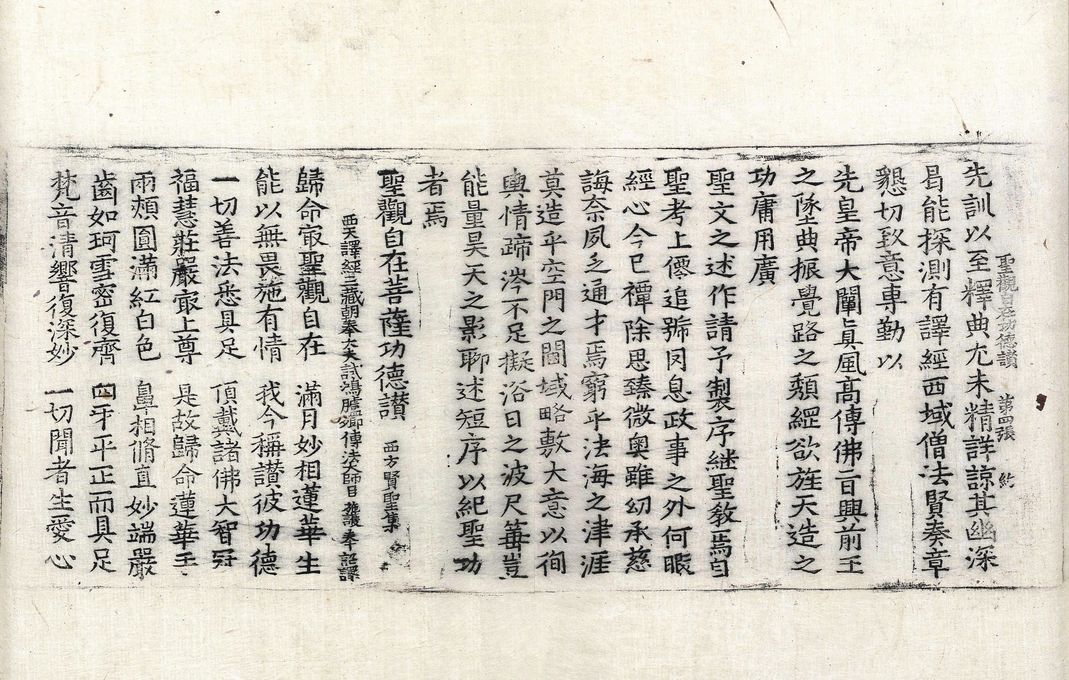 聖觀自在功德讃 第四張 約
先訓以至釋典尤未精詳諒其幽深
曷能探測有譯經西域僧法賢奏章
懇切致意專勤以
先皇帝大闡眞風高傳佛旨興前王
之墜典振覺路之頹綱欲旌天造之
功庸用廣
聖文之述作請予製序継聖敎焉自
聖考上僊追號罔息政事之外何暇
經心今已禫除思臻微奧雖纫承慈
誨奈夙乏通才焉窮乎法海之津涯
莫造乎空門之閫域略敷大意以徇
輿情蹄涔不足擬浴日之波尺箠豈
能量昊天之影聊述短序以紀聖功
者焉
聖觀自在菩薩功德讃 西方賢聖集
西天譯經三藏朝奉大夫試鴻臚卿傳法大師臣施護奉 詔譯
歸命㝡聖觀自在 滿月妙相蓮華生
能以無畏施有情 我今稱讃彼功德
一切善法悉具足 頂戴諸佛大智冠
福慧莊嚴㝡上尊 是故歸命蓮華王
兩頰圓滿紅白色 鼻相脩直妙端嚴
齒如珂雪密復齊 四牙平正而具足
梵音清響復深妙 一切聞者生愛心